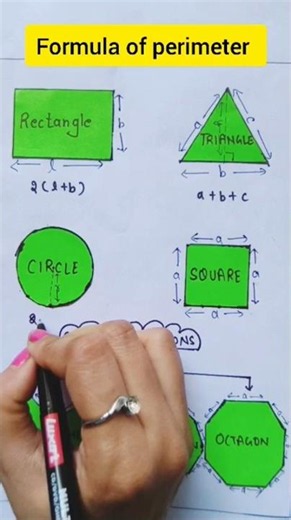 Formula of perimeter
Rectangle
b
l
2(l+b)
TRIANGLE
a
c
h
b
a+b+c
CIRCLE
r
2
SQUARE
a
a
a
a
ONS
OCTAGON
a